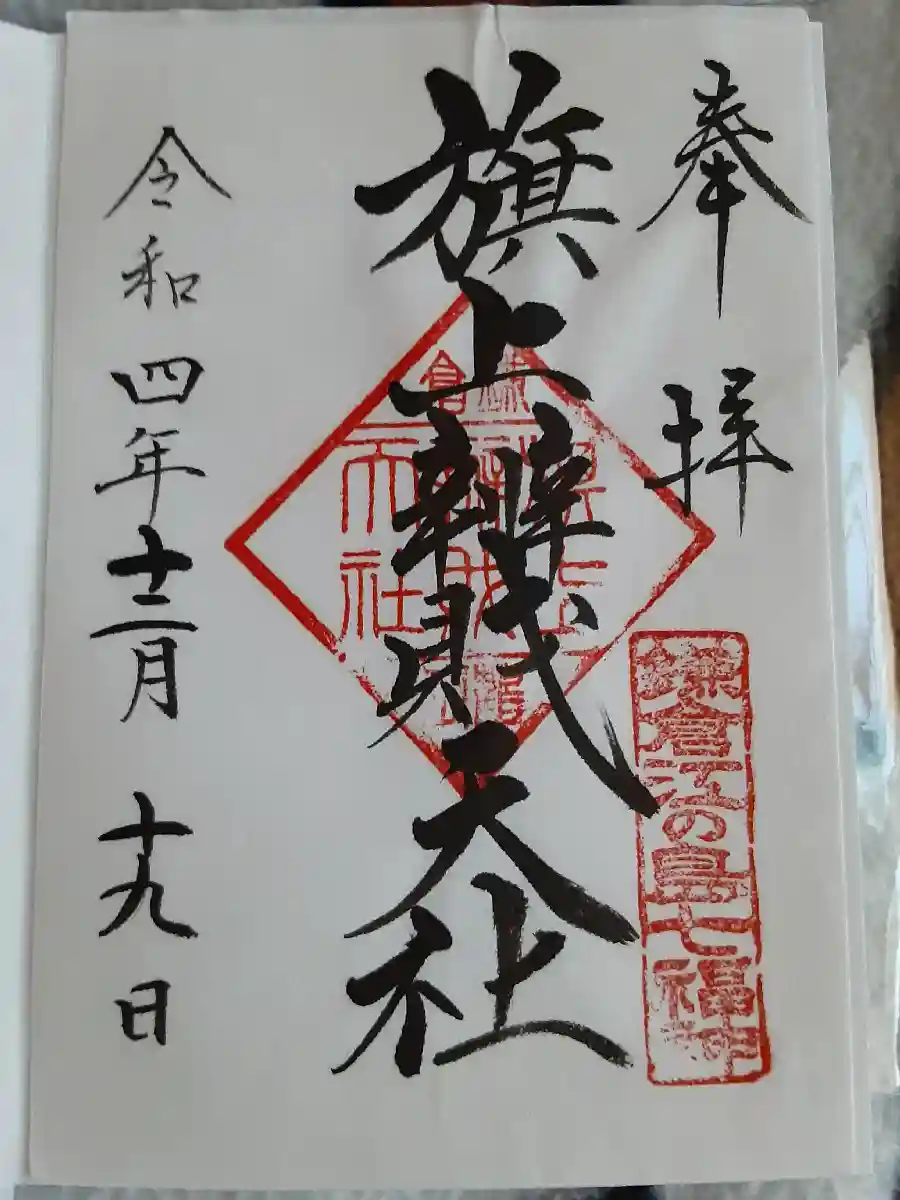 奉拝
鎌倉江の島七福神
旗上辨財天社
令和四年十二月十九日